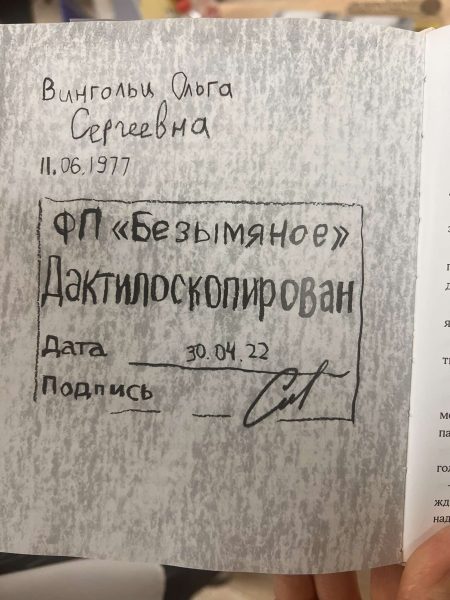 Вингольц Ольга
Сергеевна
11.06.1977
ФП «Безымяное»
Дактилоскопирован
Дата 30.04.22
Подпись